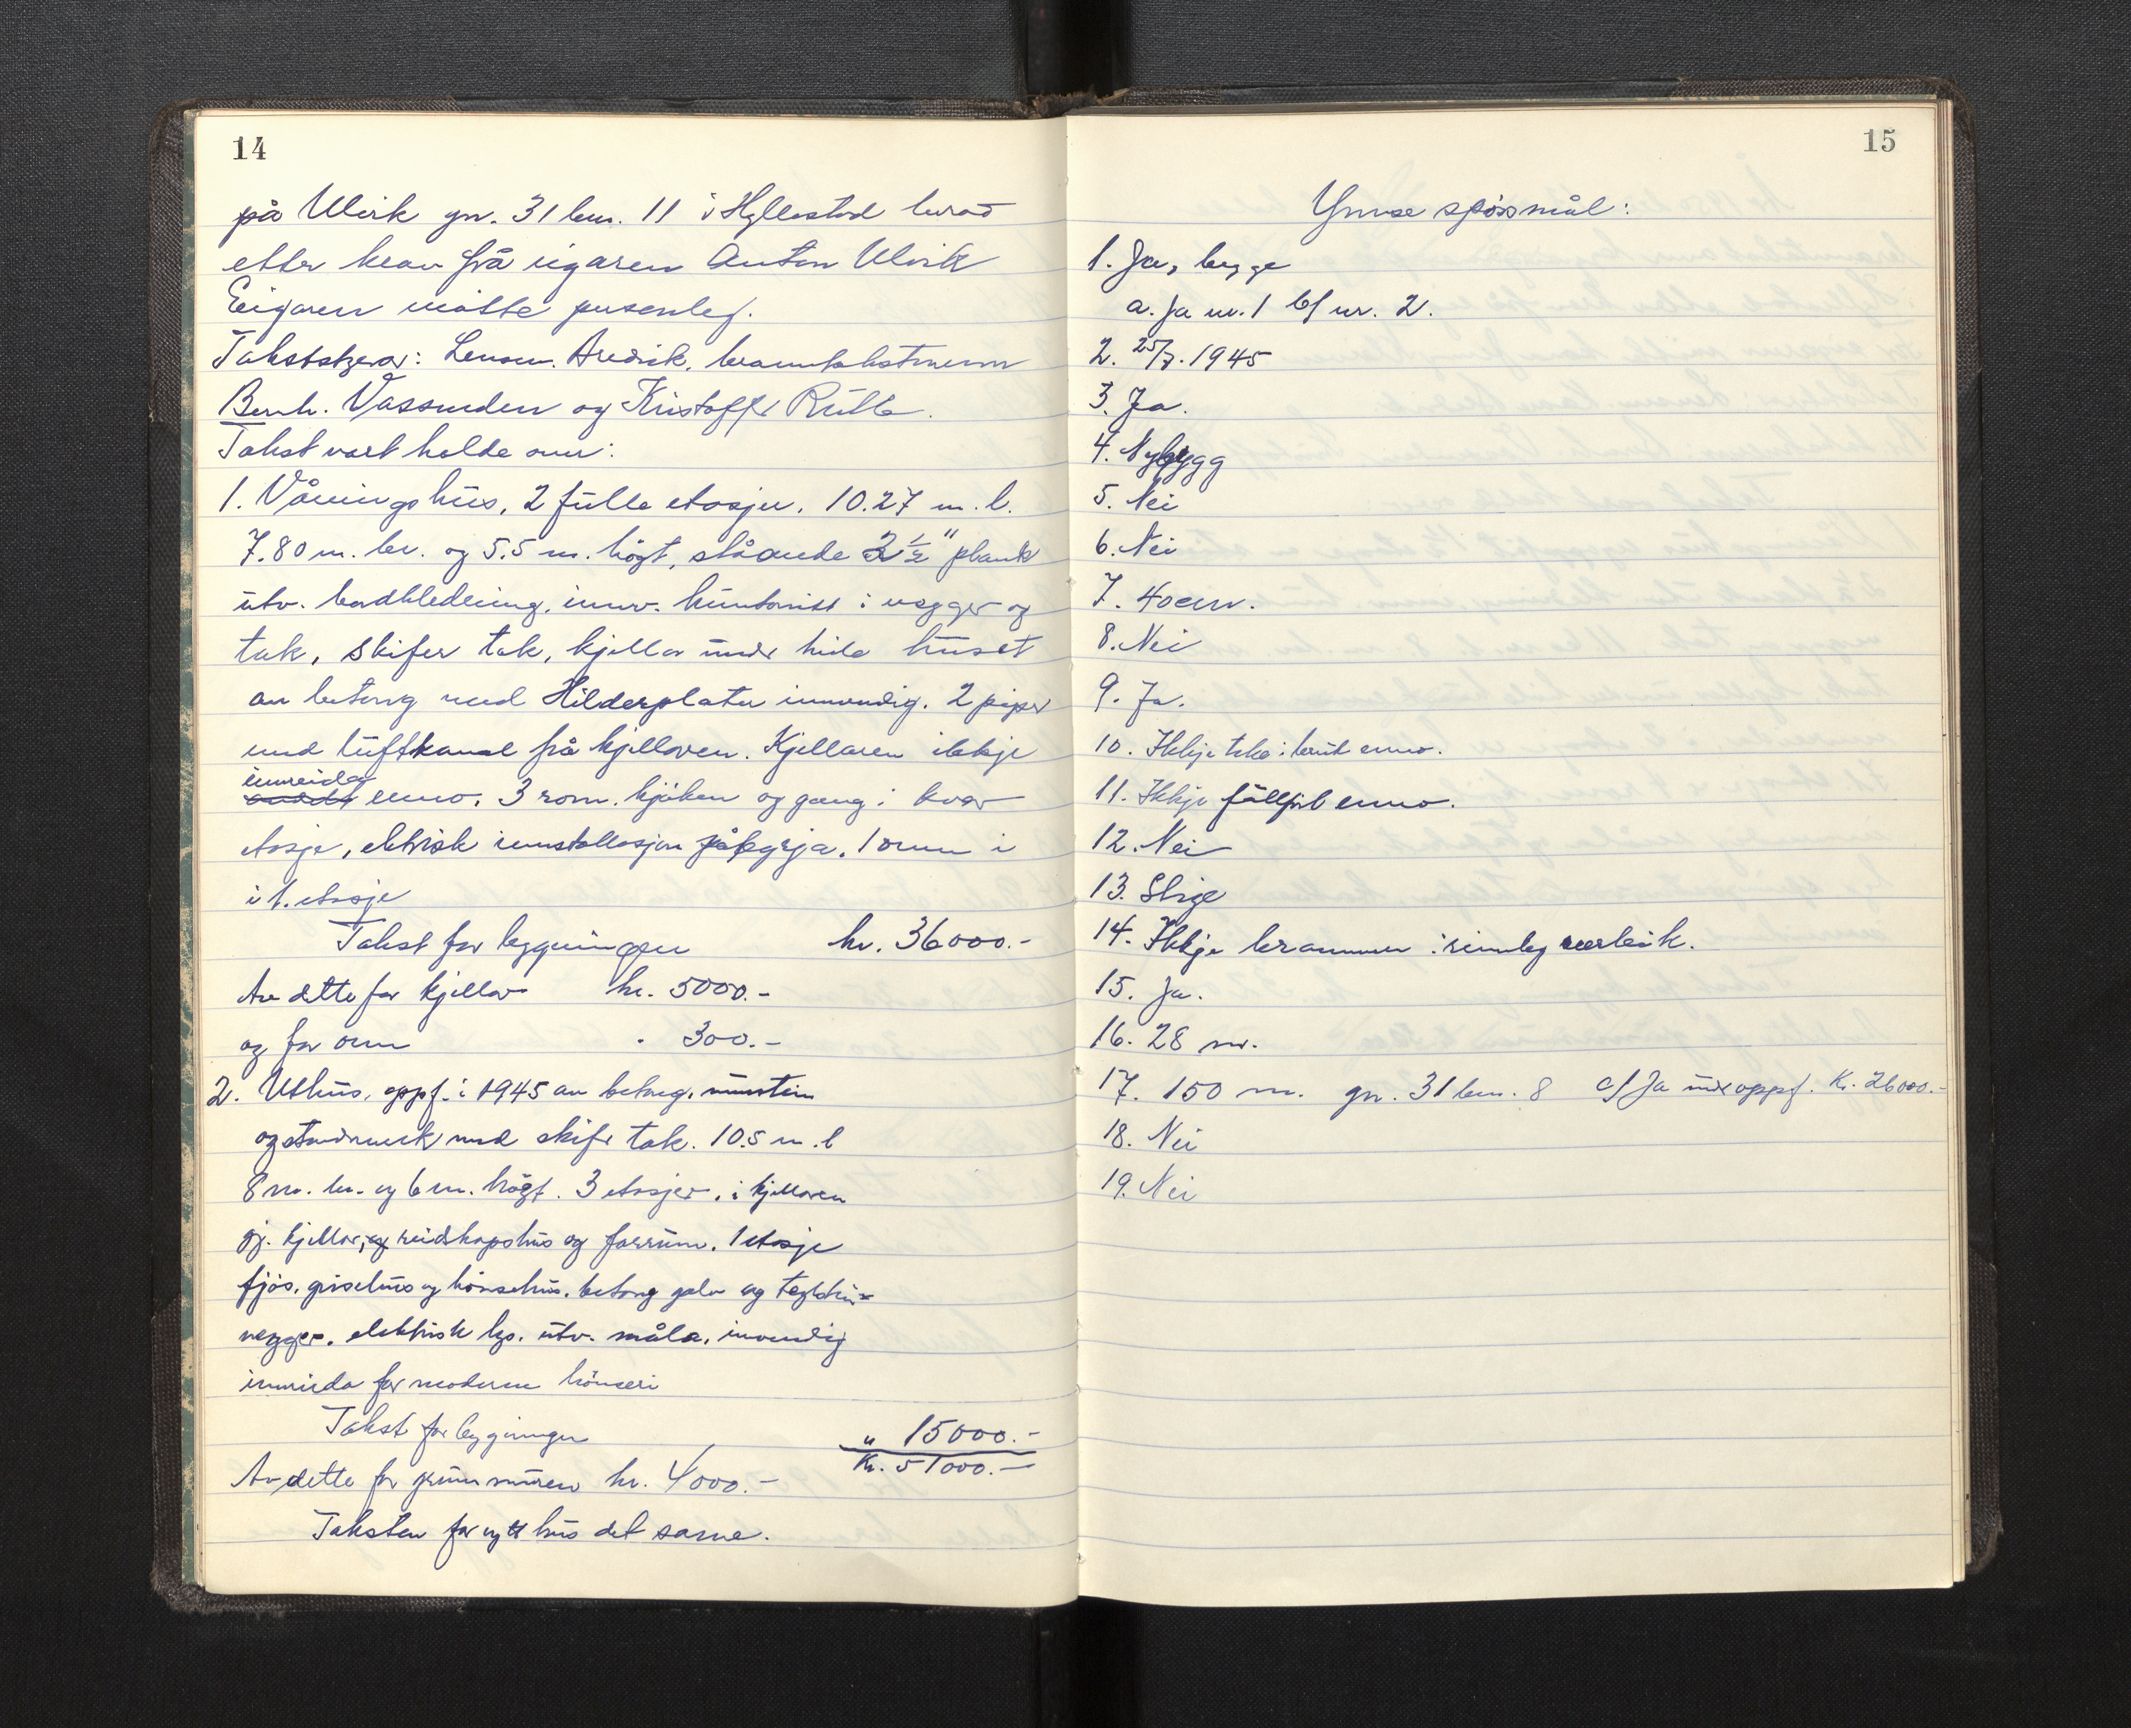 14
på Ulvik gn. 31 bnr. 11 i Hyllestad herad
etter krav frå eigaren Anton Ulvik
Eigaren møtte personleg.
Takstskjøn: Lensm. Aredrik. branntakstmenn
Bernh. Vassenden og Kristoffer Rutle.
Takst vart halde over:
1. Våningshus, 2 fulle etasjer. 10.27 m. l.
7.80 m. br. og 5.5 m. högt, ståande 2 1/2" plank
utv. bordkledning, innv. huntonitt i vegger og
tak, skifer tak, kjellar under heile huset
av betong med Hilderplater innvendig. 2 piper
med luftkanal frå kjellaren. Kjellaren ikkje
innreida
enno. 3 rom. kjöken og gang i kvar
etasje, elektrisk innstallasjon påbegyja. 1 omn i
i 1. etasje
Takst for bygningen kr. 36000.-
Av dette for kjellar kr. 5000.-
og for omn " 300.-
2. Uthus, oppf. i 1945 av betong, murstein
og stavverk med skifer tak. 10.5 m. l
8 m. br. og 6 m. högt. 3 etasjer. i kjellaren
gj. kjellar, og reidskapshus og forrum. 1 etasje
fjös. grisehus og hönsehus. betong golv og teglstein
vegger. elektrisk lys. utv. måla. invendig
innreida for moderne hönseri
Takst for bygningen " 15000.-
Kr. 51000.-
Av dette for grunnmuren kr. 4000.-
Taksten for nytt hus det same.
15
Ymse spössmål:
1. Ja, begge
a. Ja nr. 1 b/ nr. 2.
2. 25/7. 1945
3. Ja.
4. Nybygg
5. Nei
6. Nei
7. 40 cm.
8. Nei
9. Ja.
10. Ikkje teke i bruk enno.
11. Ikkje fullfört enno.
12. Nei
13. Stige
14. Ikkje brannmur i rimeleg nærleik.
15. Ja.
16. 28 m.
17. 150 m. gn. 31 bnr. 8 c/ Ja under oppf. Kr. 26000.-
18. Nei
19. Nei